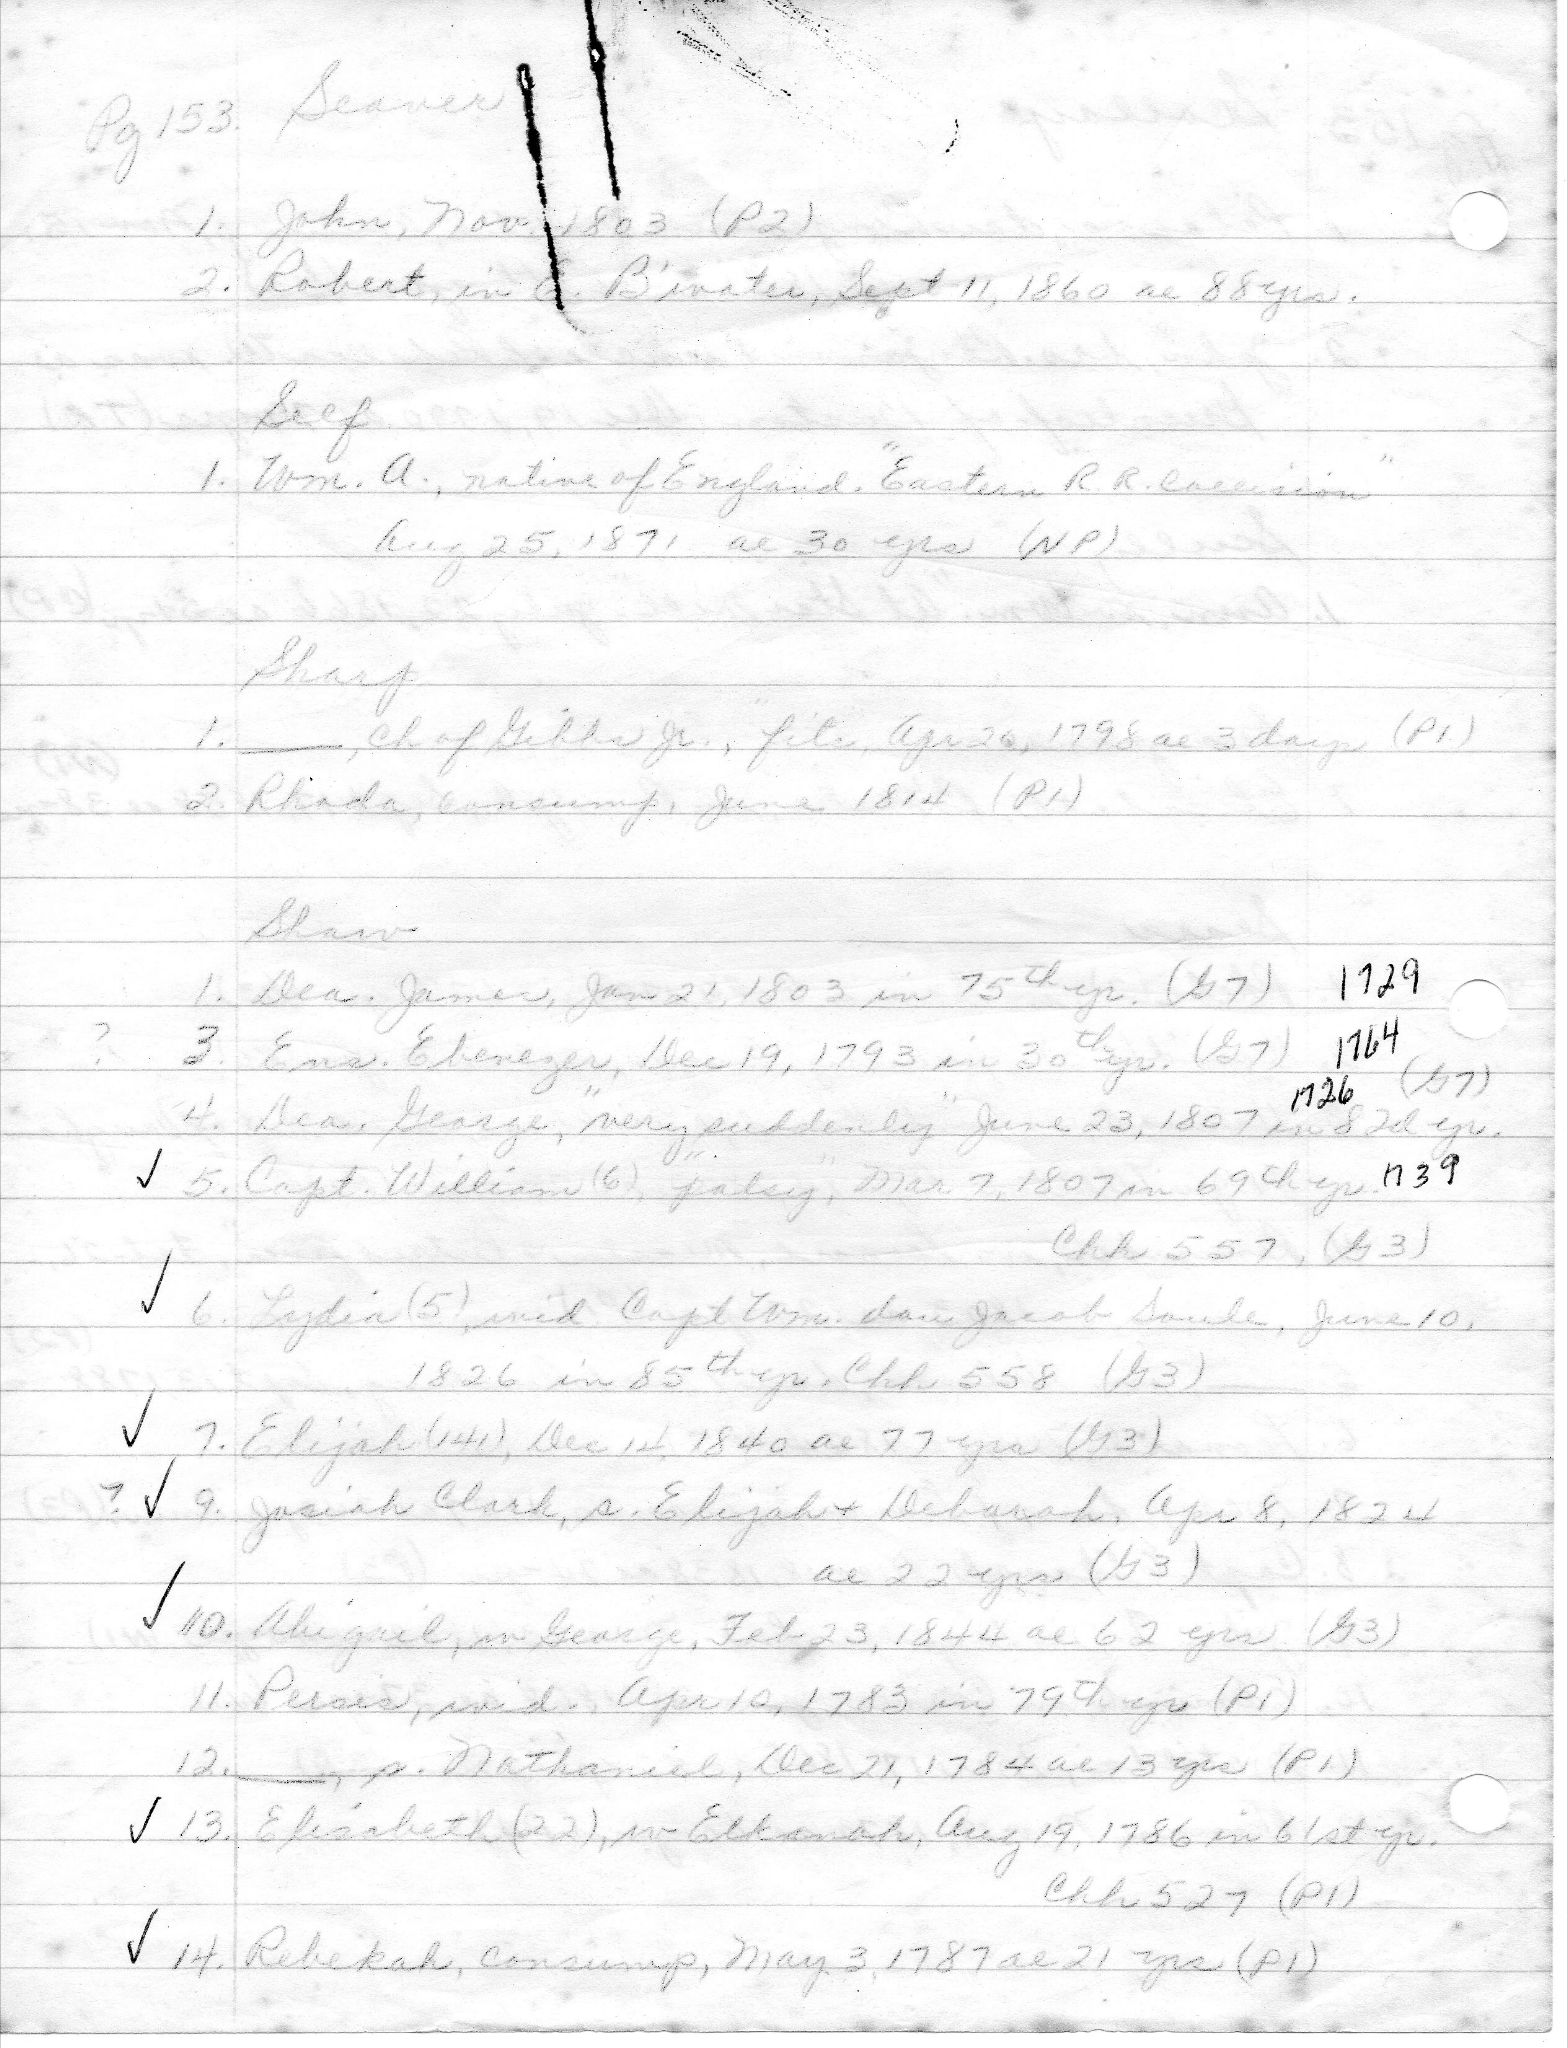 Pg 153. Seaver
1. John, Nov. 1803 (P2)
2. Robert, in E. B'water, Sept 11, 1860 ae 88 yrs.
Self
1. Wm. A., native of England. "Eastern R. R. Collision"
Aug 25, 1871 ae 30 yrs (NP)
Sharp
1. ——, ch of Gibbs Jr., "fits, Apr 26, 1798 ae 3 days (P1)
2. Rhoda, consump, June 1814 (P1)
Shaw
1. Dea. James, Jan 21, 1803 in 75th yr. (G7) 1729
? 3. Ens. Ebenezer, Dec 19, 1793 in 30th yr. (G7) 1764
4. Dea. George, "very suddenly" June 23, 1807 in 82d yr. 1726 (G7)
✓ 5. Capt. William (6), "palsy", Mar 7, 1807 in 69th yr. 1739
Chh 557, (G3)
✓ 6. Lydia (5), wid Capt Wm. dau Jacob Soule, June 10,
1826 in 85th yr. Chh 558 (G3)
✓ 7. Elijah (141), Dec 14, 1840 ae 77 yrs (G3)
? ✓ 9. Josiah Clark, s. Elijah + Deborah, Apr 8, 1824
ae 22 yrs (G3)
✓ 10. Abigail, w George, Feb 23, 1844 ae 62 yrs (G3)
11. Persis, wid., Apr 10, 1783 in 79th yr (P1)
12. ——, s. Nathaniel, Dec 21, 1784 ae 13 yrs (P1)
✓ 13. Elisabeth (22), w Elkanah, Aug 19, 1786 in 61st yr.
Chh 527 (P1)
✓ 14. Rebekah, consump, May 3, 1787 ae 21 yrs (P1)